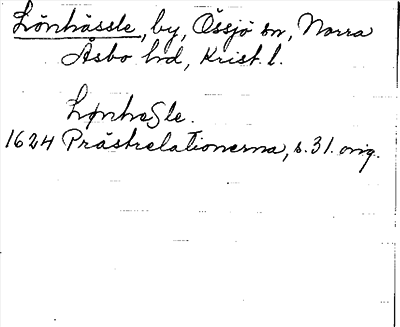 Lönhässle, by, Össjö sn, Norra
Åsbo hd, Krist. l.
LønheSle.
1624 Prästrelationerna, s. 31. orig.